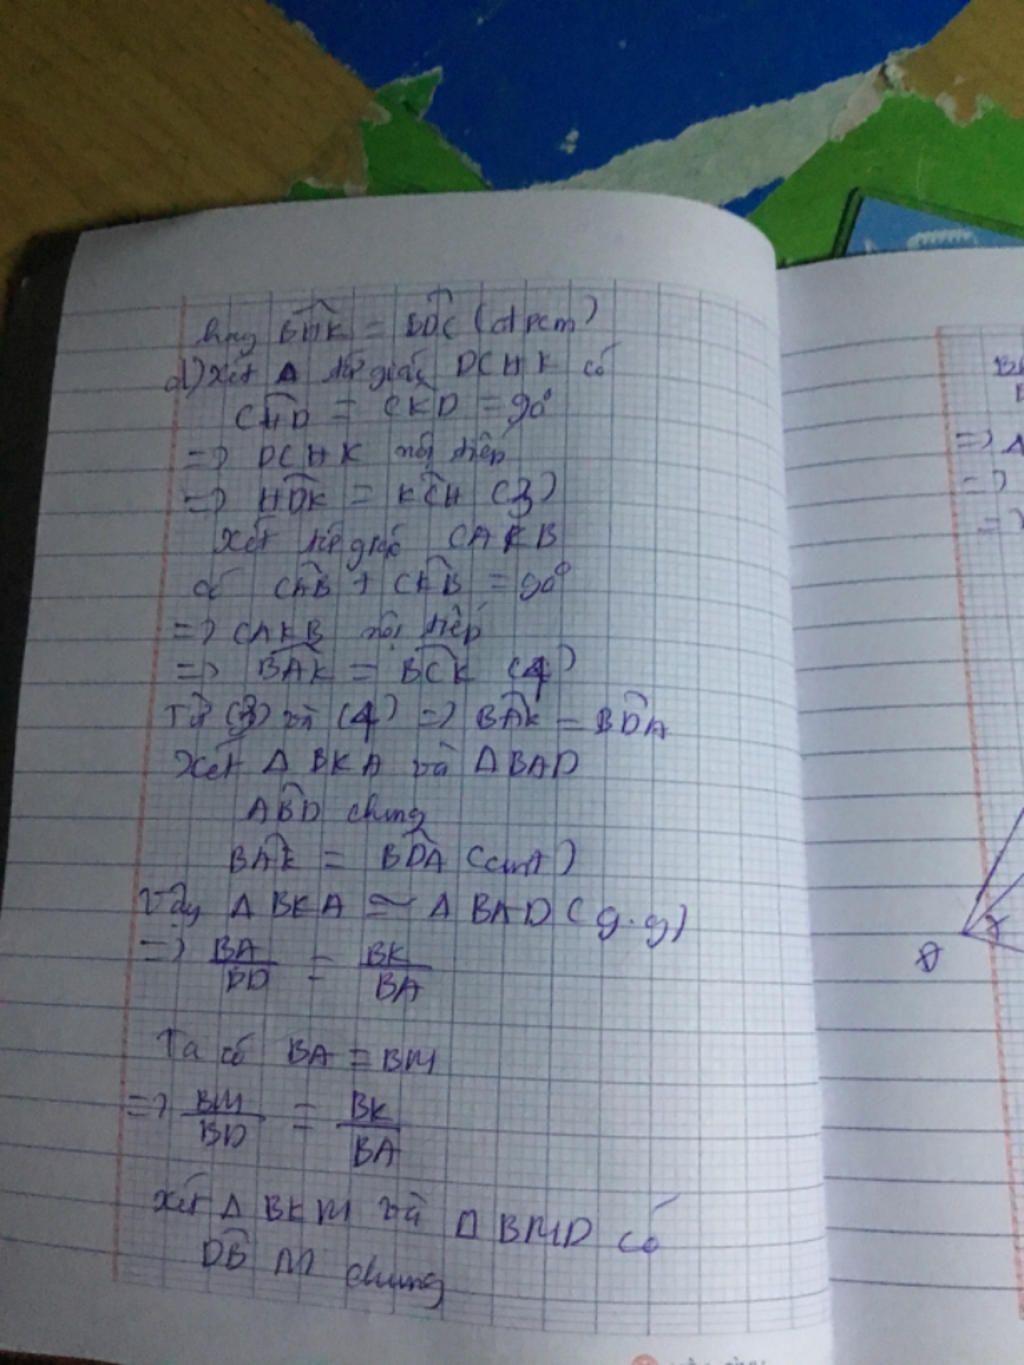 hay BHK = BDC (đpcm)
d) Xét Δ tứ giác DCHK có
CHD = CKD = 90°
=> DCHK nội tiếp
=> HDK = KCH (3)
Xét tứ giác CAKB
có CAB + CKB = 90°
=> CAKB nội tiếp
=> BAK = BCK (4)
Từ (3) và (4) => BAK = BDA
Xét Δ BKA và Δ BAD
ABD chung
BAK = BDA (cmt)
Vậy Δ BKA ≃ Δ BAD (g.g)
=> BA/BD = BK/BA
Ta có BA = BM
=> BM/BD = BK/BA
Xét Δ BKM và Δ BMD có
DBM chung
=> Δ
=>
=>
D